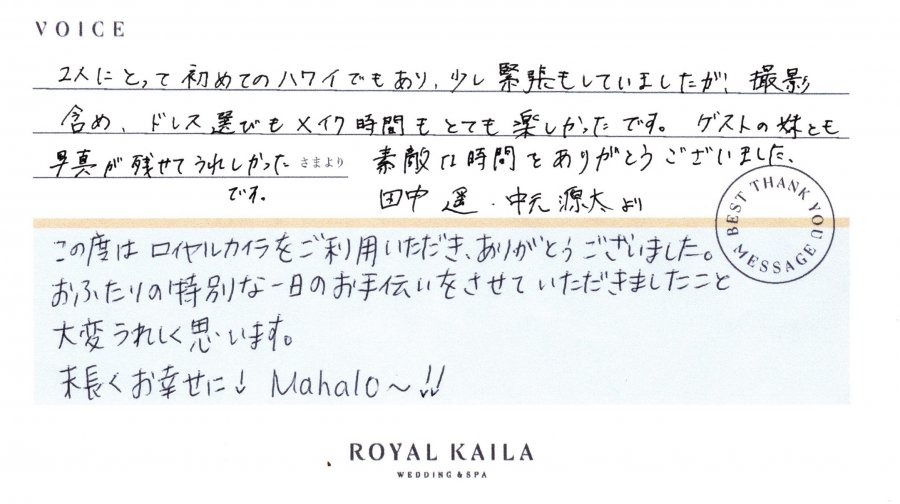 VOICE
2人にとって初めてのハワイでもあり、少し緊張もしていましたが、撮影
含め、ドレス選びもメイク時間もとても楽しかったです。ゲストの妹とも
写真が残せてうれしかった さまより 素敵な時間をありがとうございました。
です。 田中 遥・中元 源太より
BEST THANK YOU MESSAGE
この度はロイヤルカイラをご利用いただき、ありがとうございました。
おふたりの特別な一日のお手伝いをさせていただきましたこと
大変うれしく思います。
末長くお幸せに! Mahalo〜!!
ROYAL KAILA
WEDDING & SPA